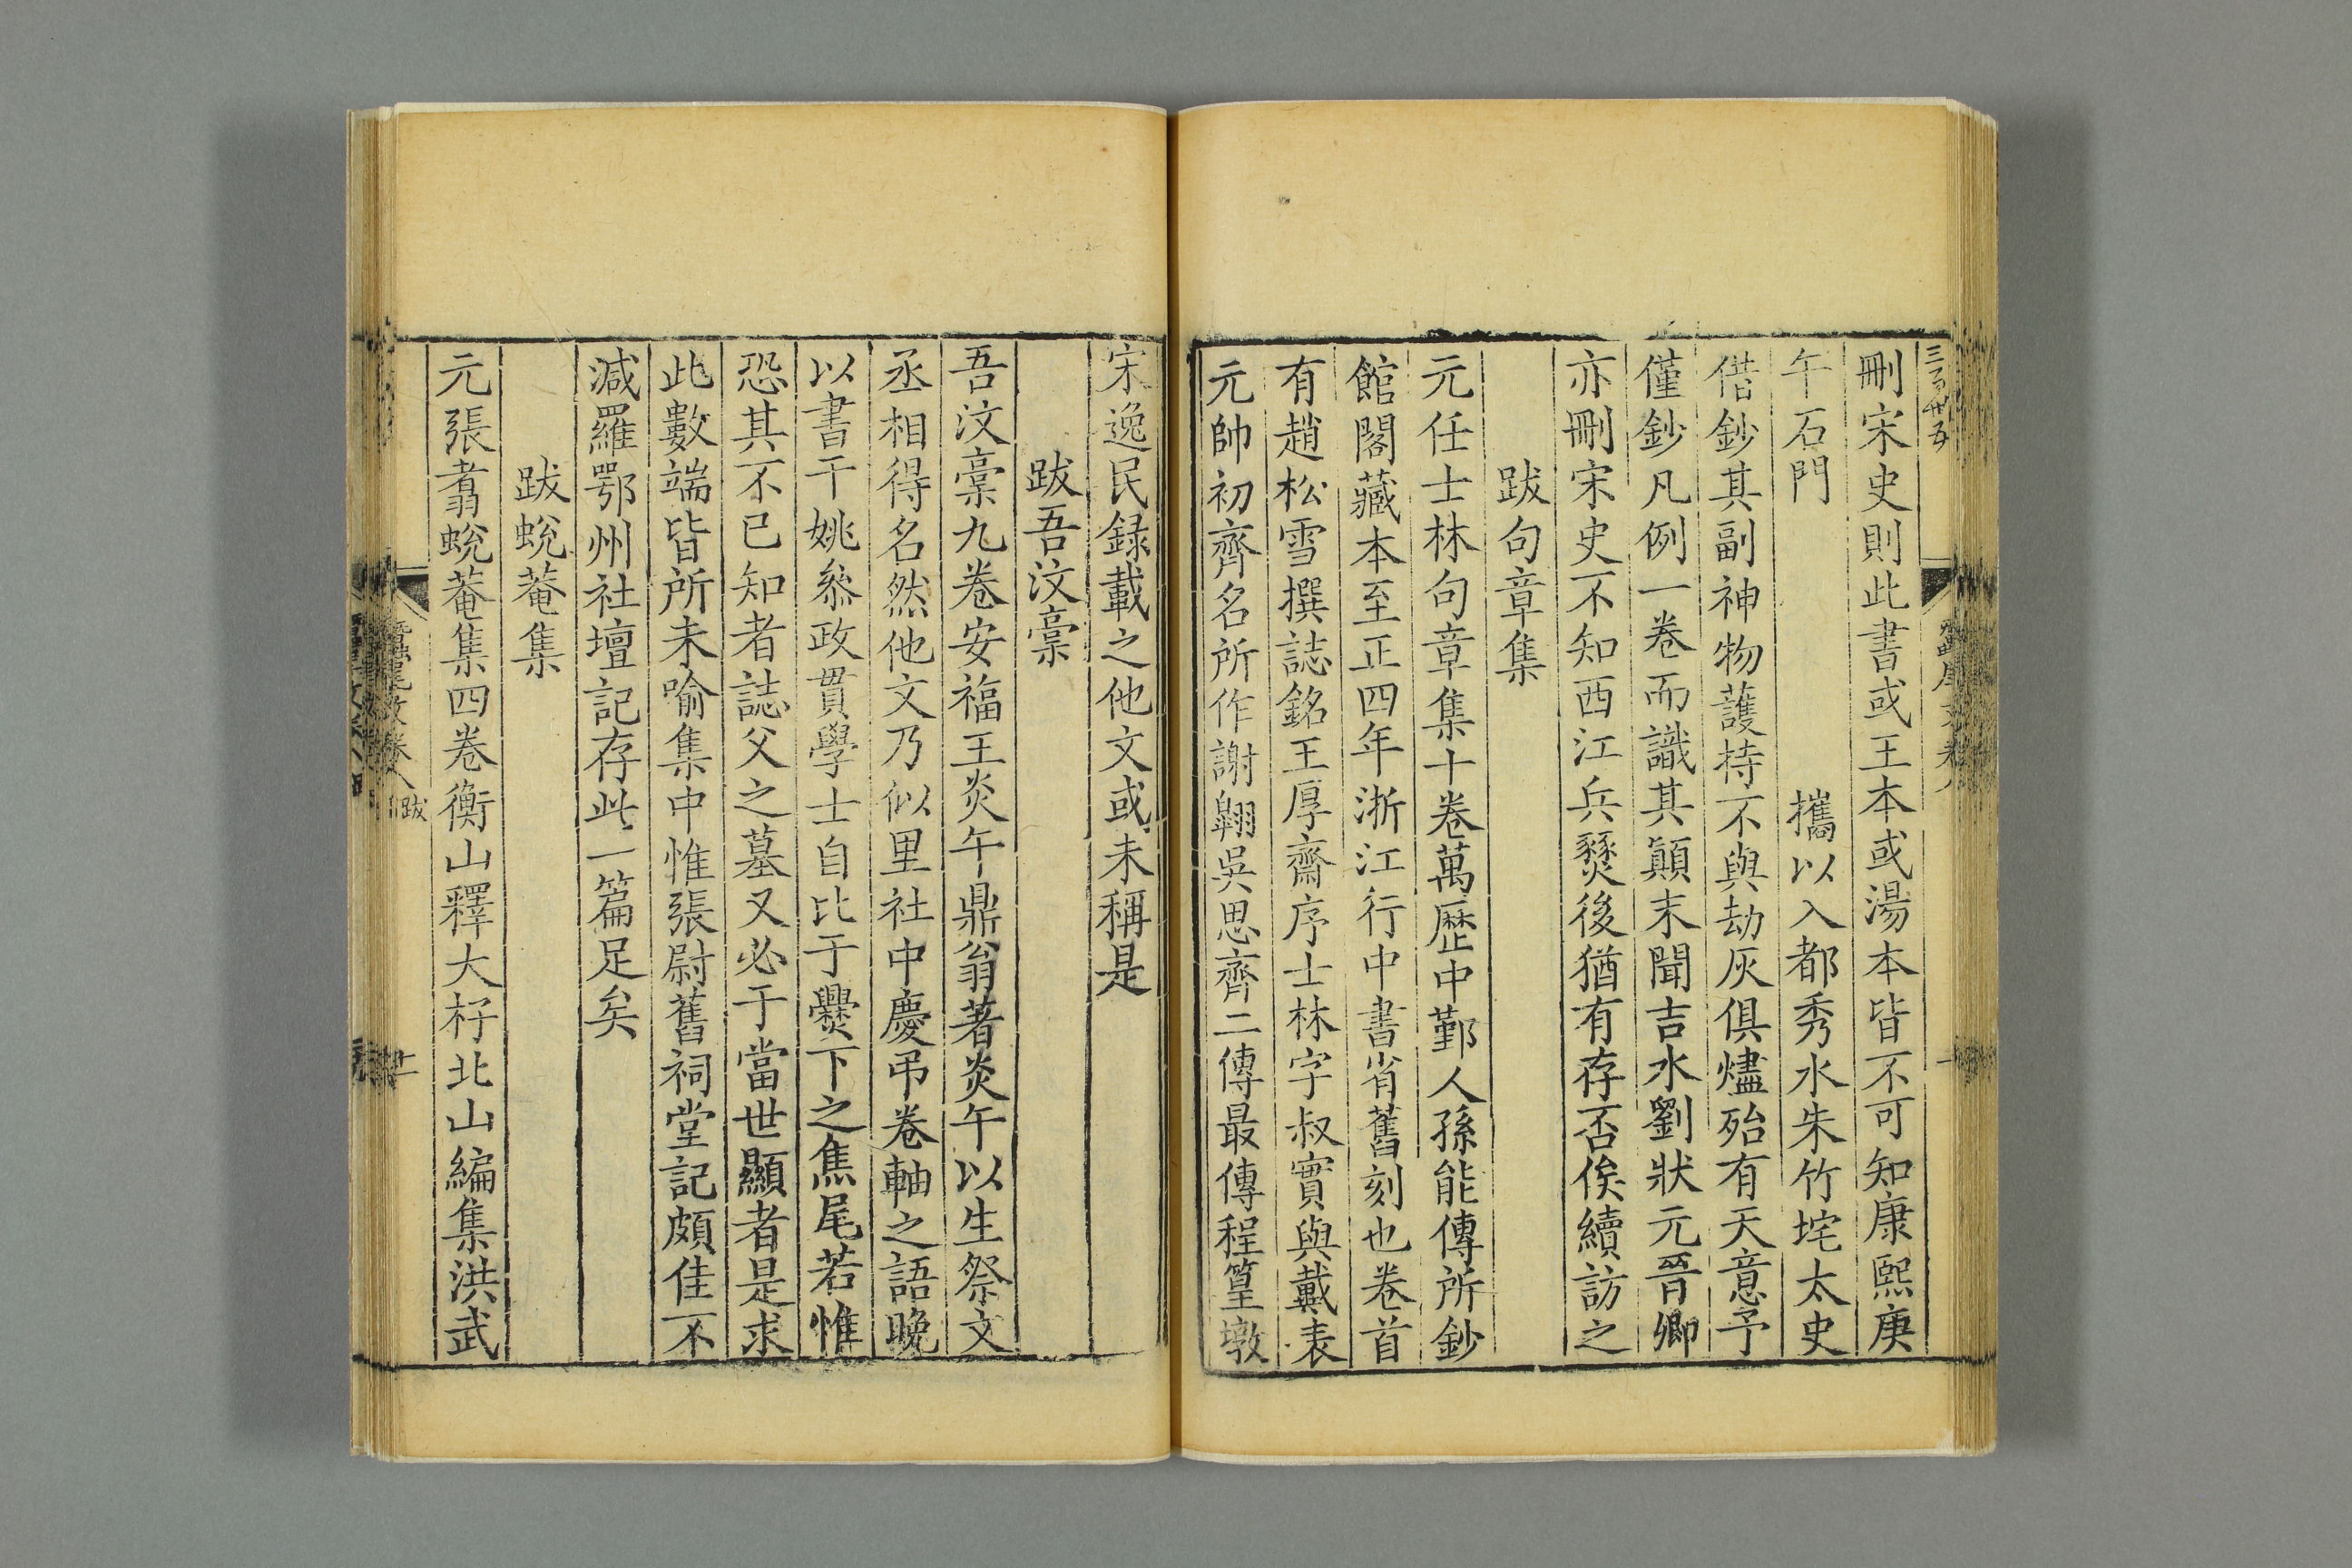 三百廿五
刪宋史則此書或王本或湯本皆不可知康熙庚
午石門　　　　　攜以入都秀水朱竹垞太史
借鈔其副神物護持不與劫灰俱燼殆有天意予
僅鈔凡例一卷而識其顛末聞吉水劉狀元晉卿
亦刪宋史不知西江兵燹後猶有存否俟續訪之
跋句章集
元任士林句章集十卷萬歷中鄞人孫能傳所鈔
館閣藏本至正四年浙江行中書省舊刻也卷首
有趙松雪撰誌銘王厚齋序士林字叔實與戴表
元帥初齊名所作謝翱吳思齊二傳最傳程篁墩
宋逸民録載之他文或未稱是
跋吾汶稾
吾汶稾九卷安福王炎午鼎翁著炎午以生祭文
丞相得名然他文乃似里社中慶弔卷軸之語晚
以書干姚叅政貫學士自比于爨下之焦尾若惟
恐其不已知者誌父之墓又必于當世顯者是求
此數端皆所未喻集中惟張尉舊祠堂記頗佳不
減羅鄂州社壇記存此一篇足矣
跋蛻菴集
元張翥蛻菴集四卷衡山釋大杍北山編集洪武
蠶尾文卷八 跋